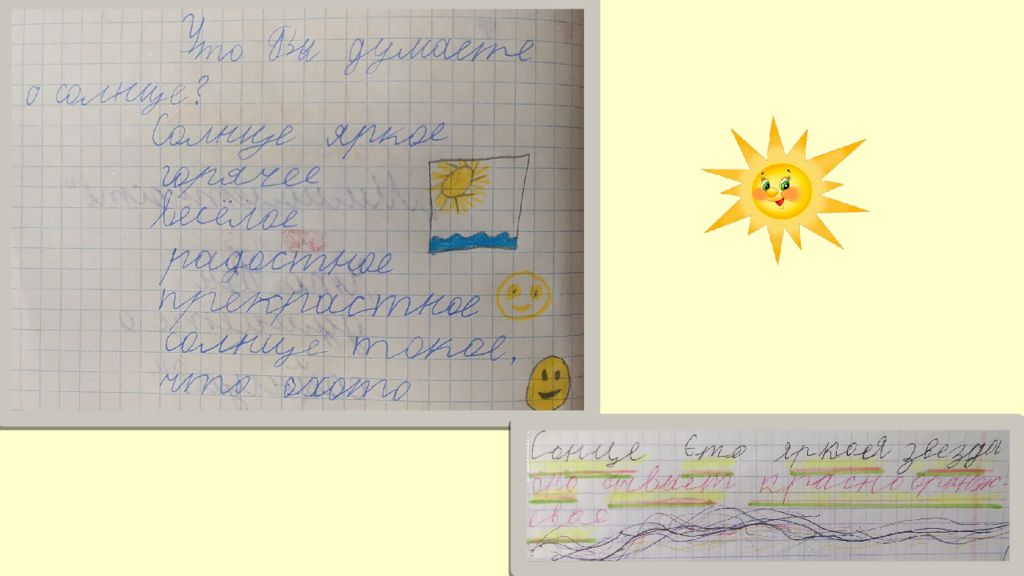 Что Вы думаете
о солнце?
Солнце яркое
горячее
весёлое
радостное
прекрастное
солнце токое,
что охото
Сонце Єто яркоя звезда
оно
красно оранж-
евое